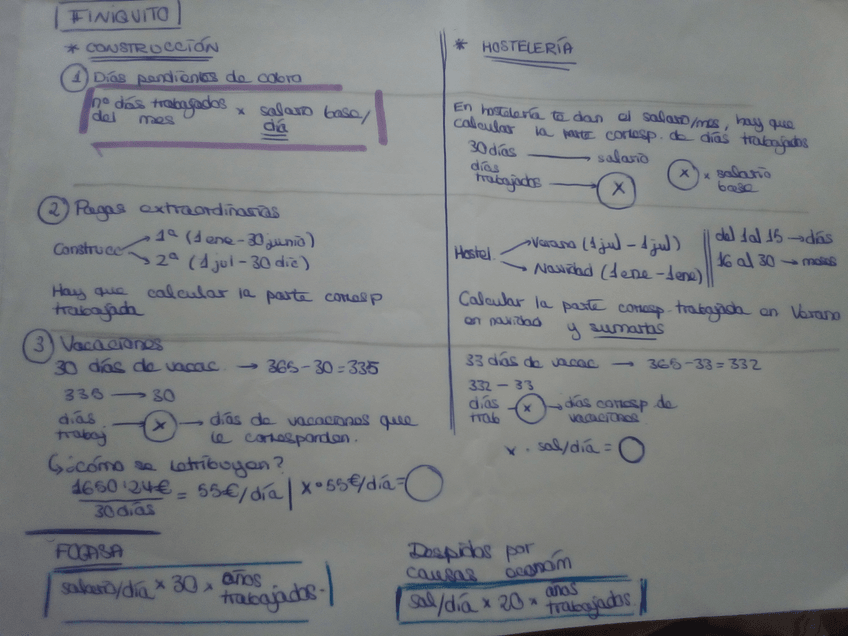 FINIQUITO
* CONSTRUCCIÓN
① Días pendientes de cobro
nº días trabajados × salario base/
del mes día
② Pagas extraordinarias
Construcc 1ª (1 ene-30 junio)
2ª (1 jul - 30 dic)
Hay que calcular la parte corresp
trabajada
③ Vacaciones
30 días de vacac. → 365-30=335
335 → 30
días
trabaj → x → días de vacaciones que
le corresponden.
↳ ¿cómo se retribuyen?
1650'24€ = 55€/día | x · 55€/día =
30 días
FOGASA
salario/día × 30 × años
trabajados.
* HOSTELERÍA
En hostelería te dan el salario/mes, hay que
calcular la parte corresp. de días trabajados
30 días → salario
días
trabajados → x
x × salario
base
Hostel. Verano (1 jul - 1 jul)
Navidad (1 ene - 1 ene)
del 1 al 15 → días
16 al 30 → meses
Calcular la parte corresp. trabajada en Verano
en navidad y sumarlas
33 días de vacac → 365-33=332
332 - 33
días
trab - x → días corresp. de
vacaciones
x · sal/día =
Despidos por
causas económ
sal/día × 20 × años
trabajados.